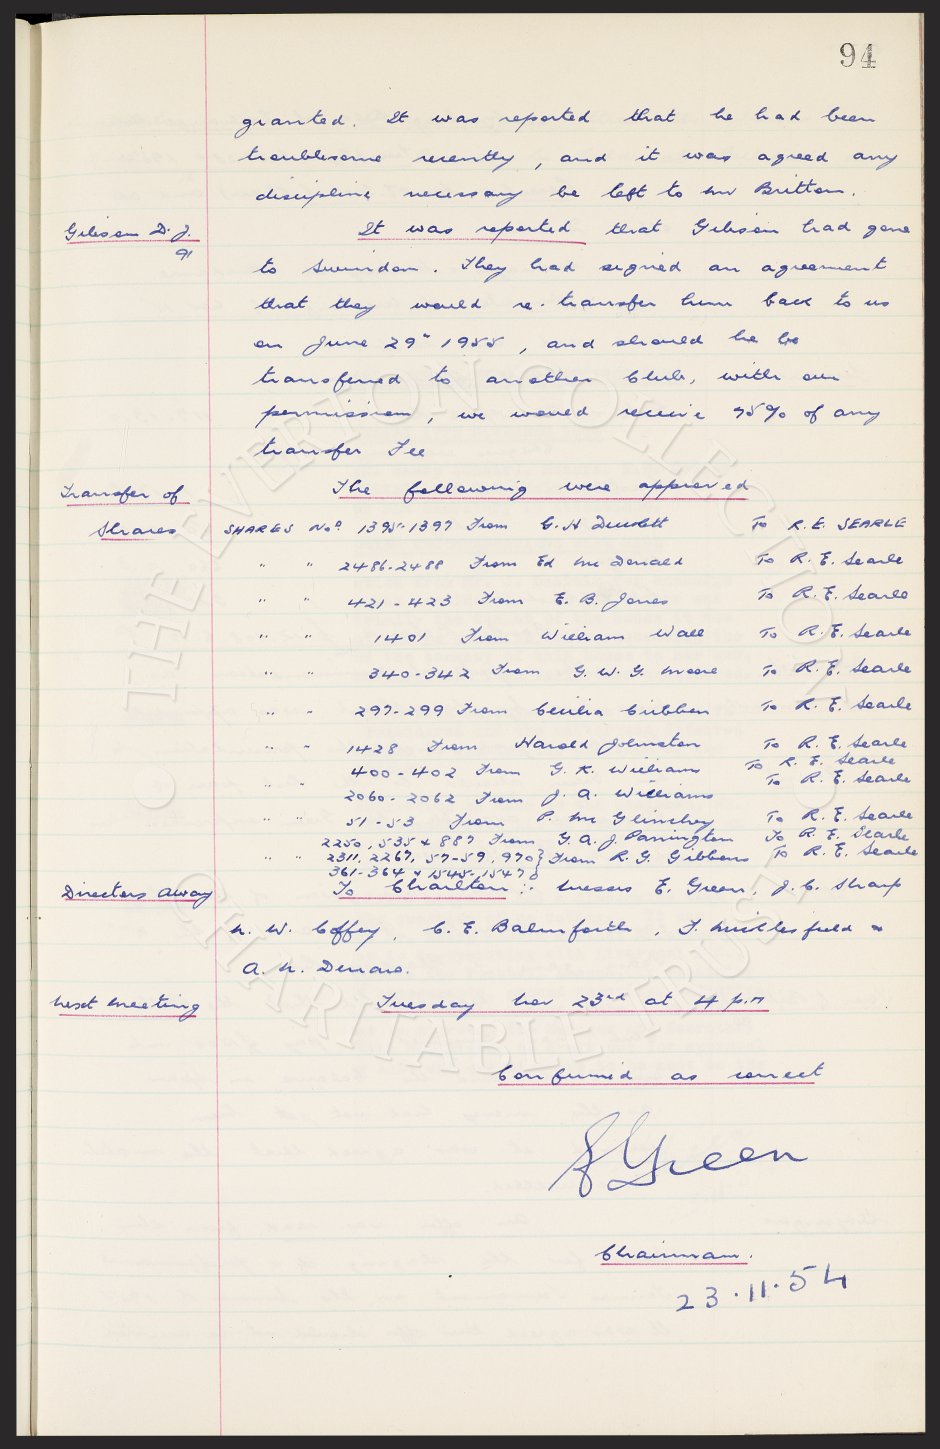 94
granted. It was reported that he had been
troublesome recently, and it was agreed any
discipline necessary be left to Mr Britton.
Gibson D. J. It was reported that Gibson had gone
91
to Swindon. They had signed an agreement
that they would re-transfer him back to us
on June 29th 1955, and should he be
transferred to another Club, with our
permission, we would receive 75% of any
transfer Fee
Transfer of The following were approved
Shares SHARES Nos 1395-1397 From G. H To R.E. SEARLE
" " 2486-2488 From Ed McDonald To R. E. Searle
" " 421-423 From E. B. Jones To R. E. Searle
" " 1401 From William Wall To R. E. Searle
" " 340-342 From G. W. G. Moore To R. E. Searle
" " 297-299 From Cecilia Cribben To R. E. Searle
" " 1428 From Harold Johnston To R. E. Searle
400-402 From G. K. Williams To R. E. Searle
" " 2060-2062 From J. A. Williams To R. E. Searle
" " 51-53 From P. McGlinchey To R. E. Searle
2250, 535 & 887 From G. A. J Parrington To R. E. Searle
" " 2311, 2267, 57-59, 970 } From R. G. Gibbens To R. E. Searle
361-364 & 1545-1547
Directors away To Charlton :- Messrs E. Green, J. C. Sharp
N. W. Coffey, C. E. Balmforth, F. Micklesfield &
A. N. Denaro.
Next Meeting Tuesday Nov 23rd at 4 p.m
Confirmed as correct
E Green
Chairman.
23.11.54
© THE EVERTON COLLECTION CHARITABLE TRUST